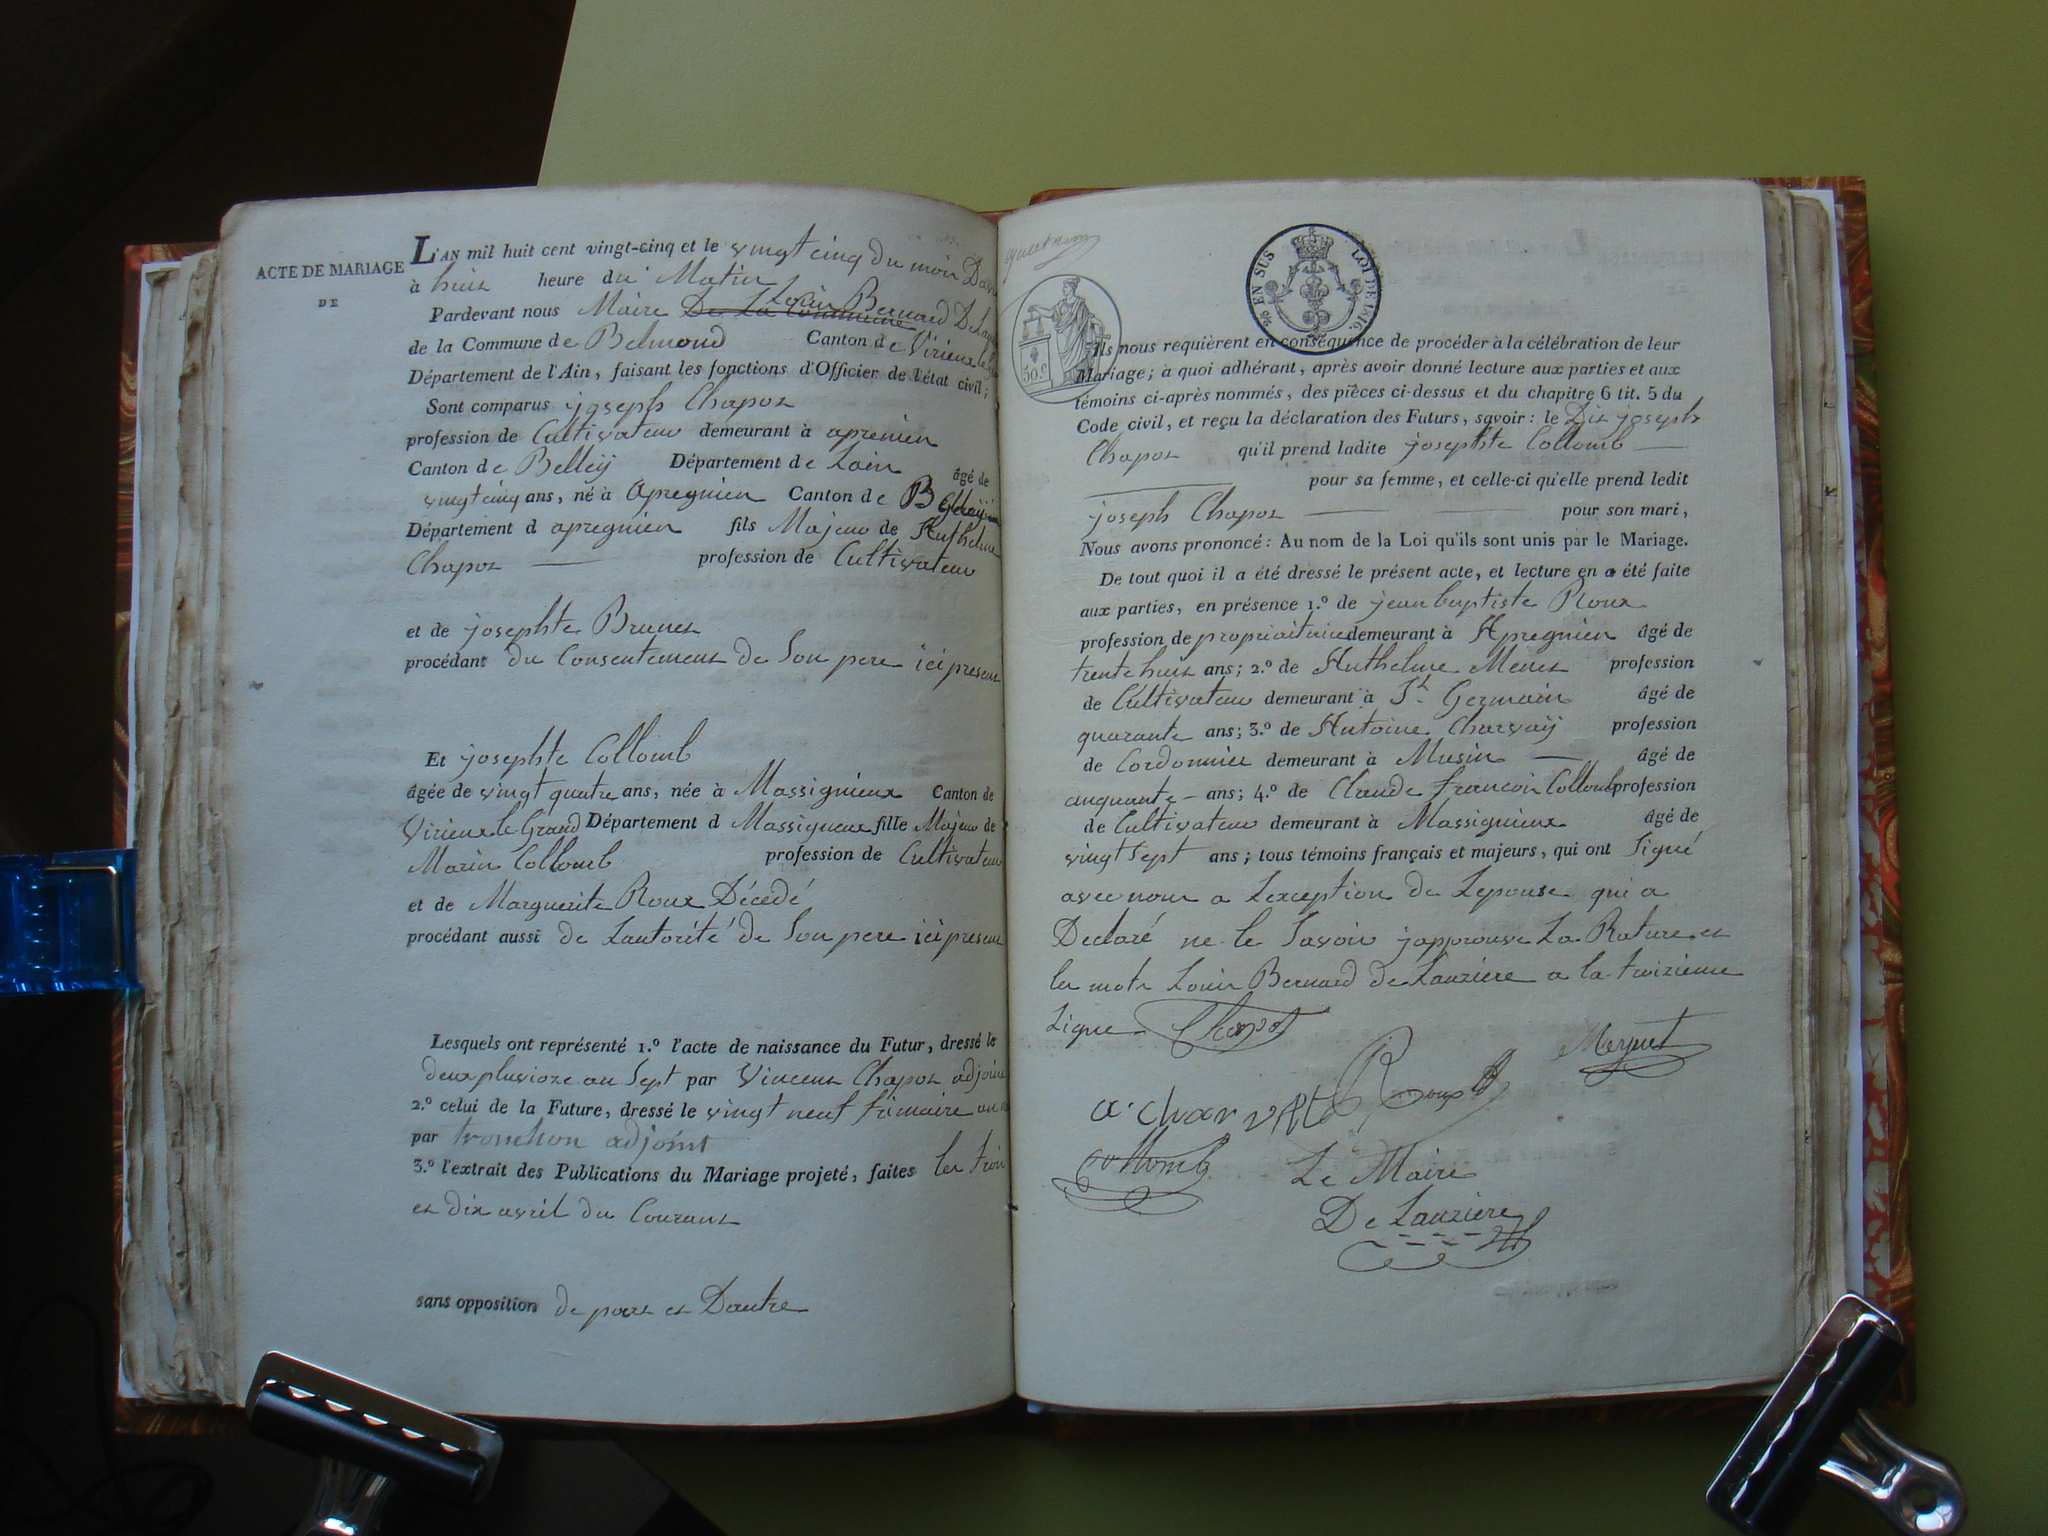 ACTE DE MARIAGE
DE
L'AN mil huit cent vingt-cinq et le vingt cinq du mois Davril
à huit heure du Matin
Louis Bernard De Lauziere
Pardevant nous Maire De La Commune
de la Commune de Belmond Canton de Virieux le
Département de l'Ain, faisant les fonctions d'Officier de l'état civil;
Sont comparus joseph Chapot
profession de Cultivateur demeurant à apremien
Canton de Belleÿ Département de Lain âgé de
vingt cinq ans, né à Apregnien Canton de Belleÿ
Département d apregnien fils Majeur de Anthelme
Chapot profession de Cultivateur
et de josephte Brunet
procédant du Consentement de Son pere ici present
Et josephte Collomb
âgée de vingt quatre ans, née à Massignieux Canton de
Virieux le Grand Département d Massignieux fille Majeur de
Marin Collomb profession de Cultivateur
et de Marguerite Roux Décédé
procédant aussi de Lautorité de Son pere ici present
Lesquels ont représenté 1.º l'acte de naissance du Futur, dressé le
deux pluvioze an Sept par Vincent Chapot adjoint
2.º celui de la Future, dressé le vingt neuf frimaire an
par tronchon adjoint
3.º l'extrait des Publications du Mariage projeté, faites les trois
et dix avril du Courant
sans opposition de part et Dautre
50.c
EN SUS LOI DE 1816.
Ils nous requièrent en conséquence de procéder à la célébration de leur
Mariage; à quoi adhérant, après avoir donné lecture aux parties et aux
témoins ci-après nommés, des pièces ci-dessus et du chapitre 6 tit. 5 du
Code civil, et reçu la déclaration des Futurs, savoir: le Dit joseph
Chapot qu'il prend ladite josephte Collomb
pour sa femme, et celle-ci qu'elle prend ledit
joseph Chapot pour son mari,
Nous avons prononcé: Au nom de la Loi qu'ils sont unis par le Mariage.
De tout quoi il a été dressé le présent acte, et lecture en a été faite
aux parties, en présence 1.º de jean baptiste Roux
profession de propriaitaire demeurant à Apregnien âgé de
trente huit ans; 2.º de Anthelme Menet profession
de Cultivateur demeurant à St. Germain âgé de
quarante ans; 3.º de Antoine Charvaÿ profession
de Cordonnier demeurant à Musin âgé de
cinquante ans; 4.º de Claude francois Collomb profession
de Cultivateur demeurant à Massignieux âgé de
vingt Sept ans; tous témoins français et majeurs, qui ont Signé
avec nous a Lexception de Lepouse qui a
Declaré ne le Savoir japprouve La Rature et
les mots Louis Bernard de Lauziere a la troizieme
Ligne Chapot
Roux
a. charvet
collomb
Le Maire
De Lauziere